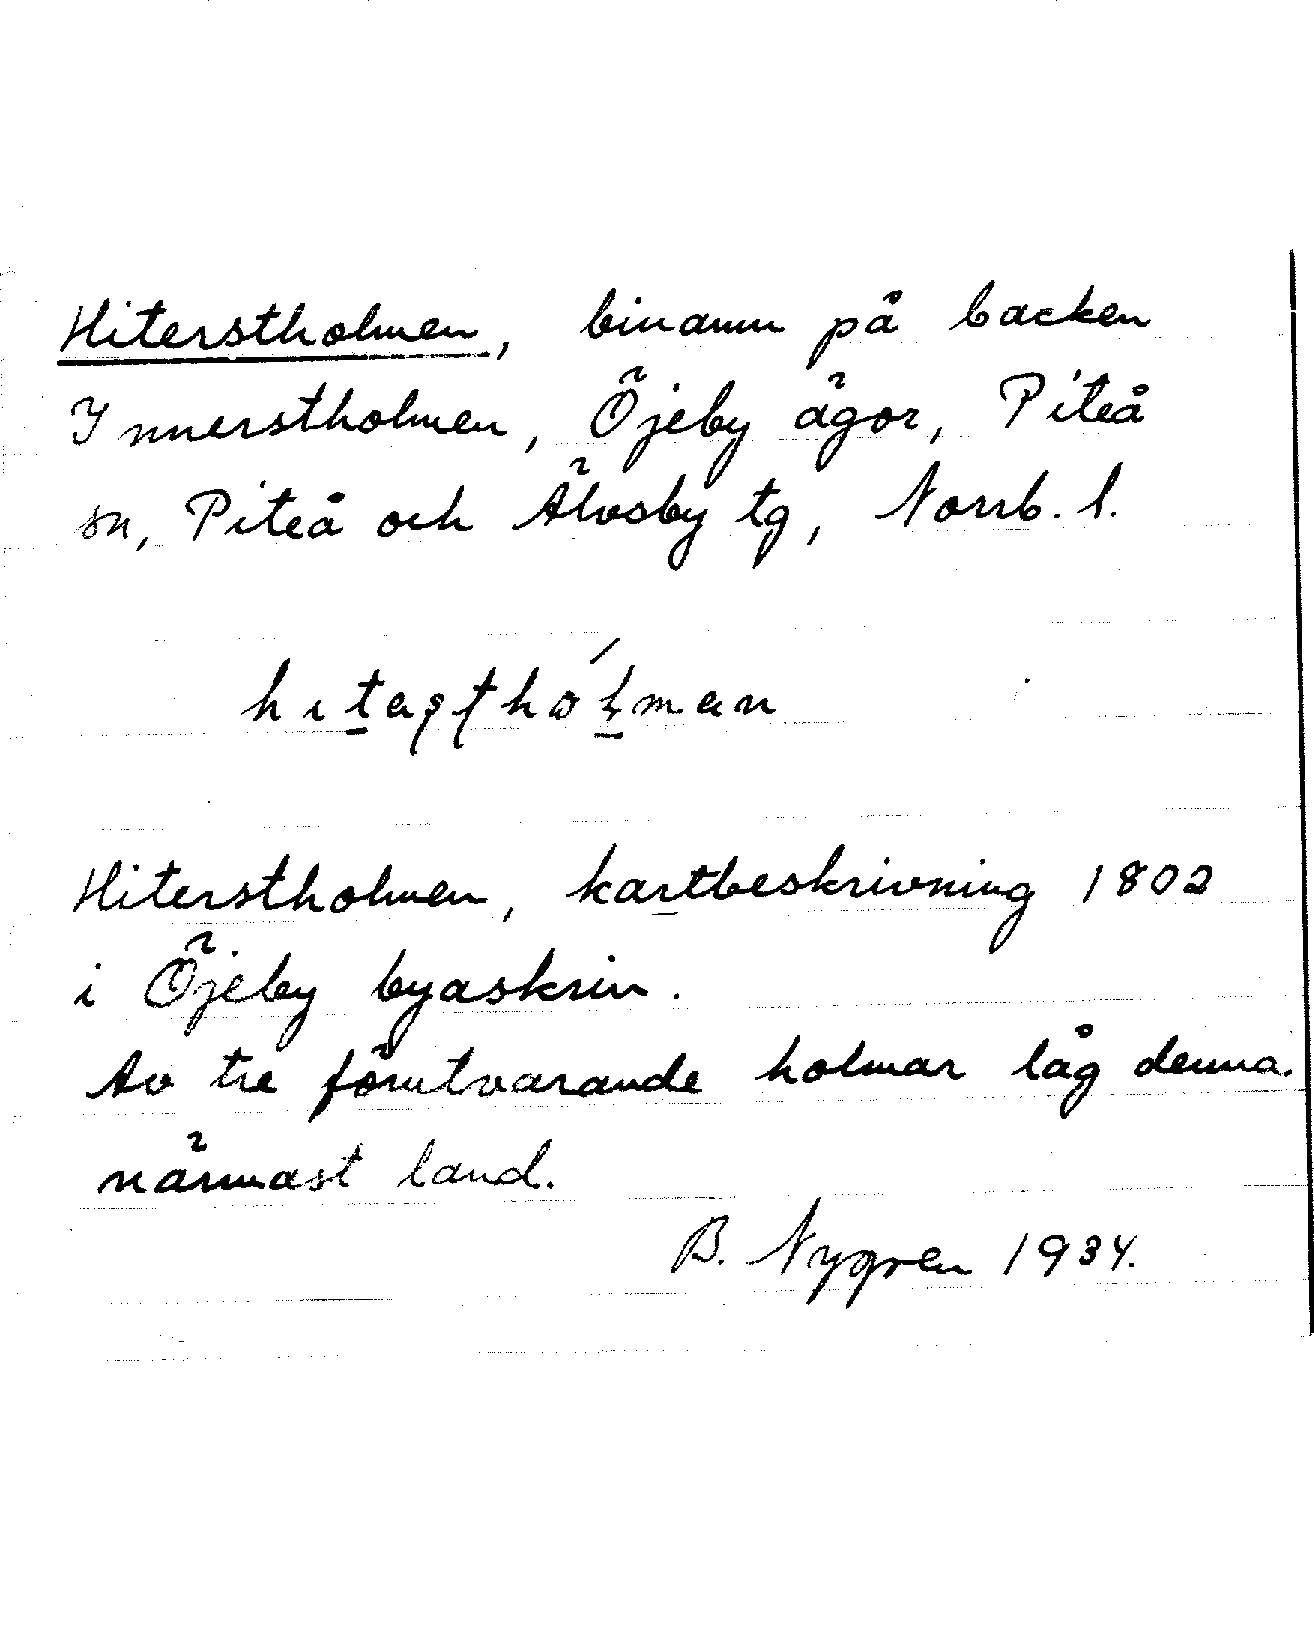 Hiterstholmen, binamn på backen
Innerstholmen, Öjeby ägor, Piteå
sn, Piteå och Älvsby tg, Norrb. l.
Hiterstholmen, kartbeskrivning 1802
i Öjeby byaskrin.
Av tre förutvarande holmar låg denna
närmast land.
B. Nygren 1934.